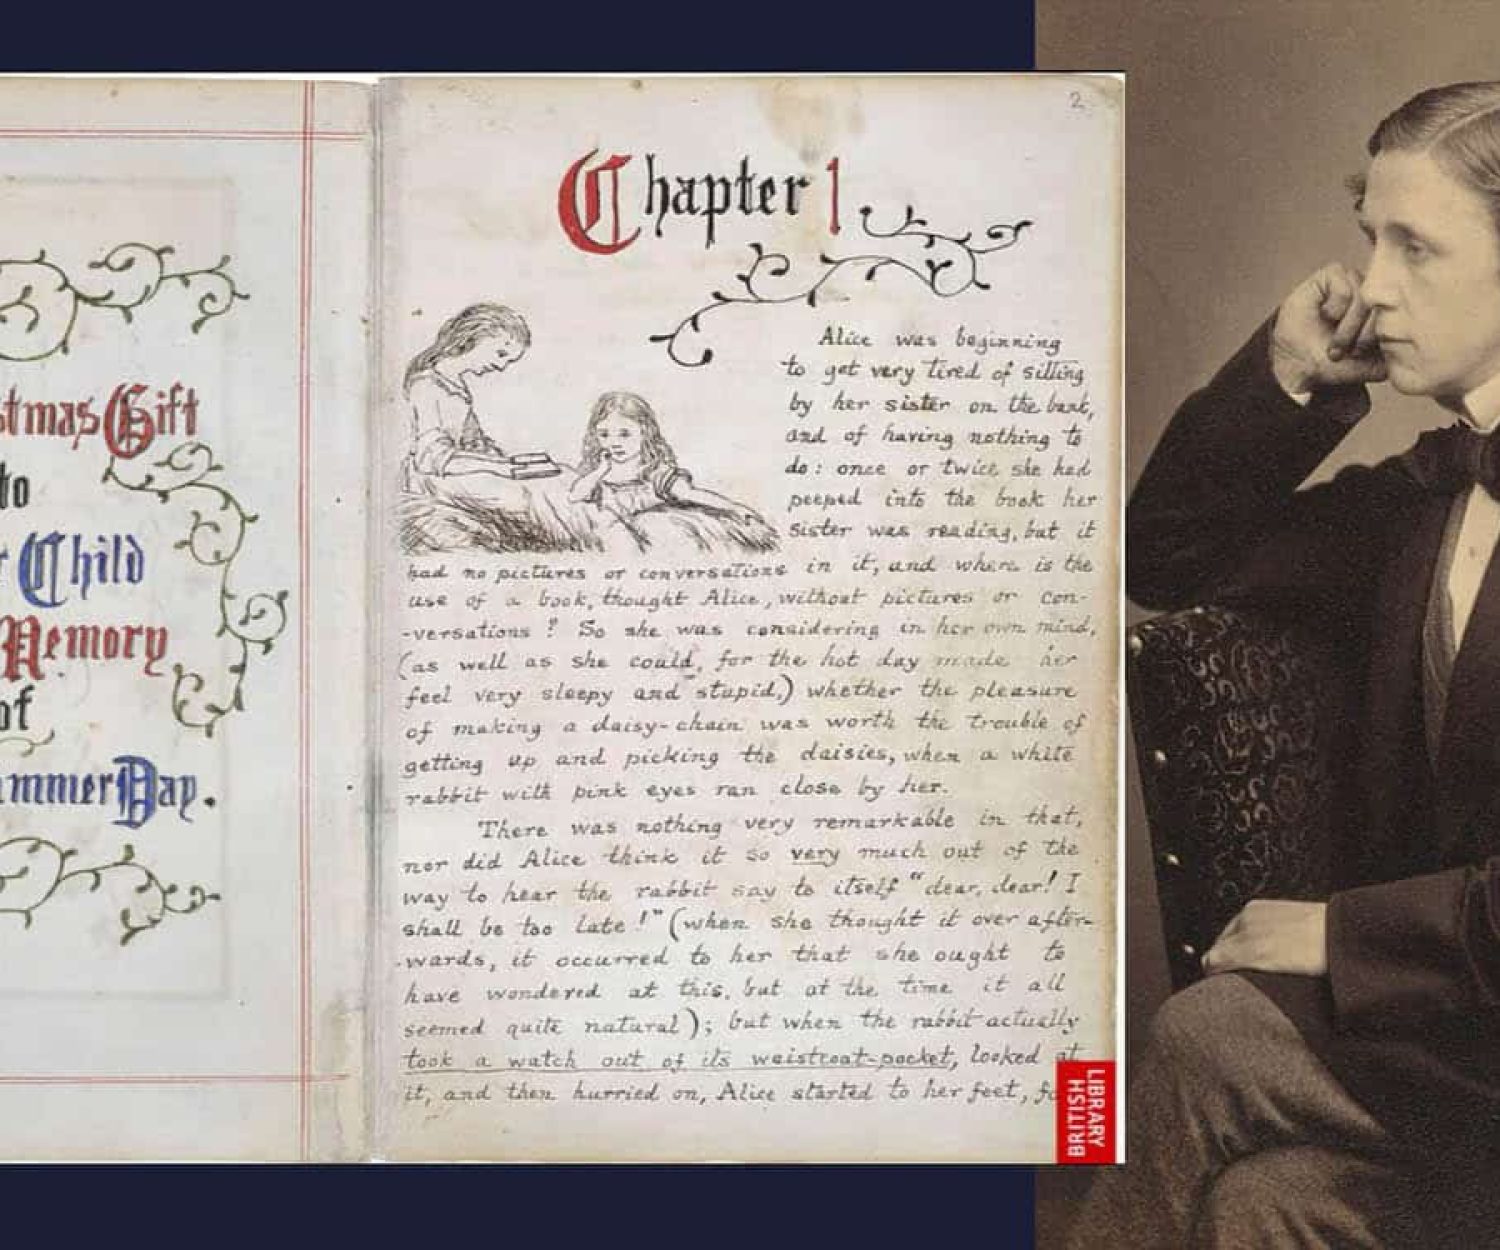 stmas Gift
to
Child
Memory
of
ummer Day.
2
Chapter 1
Alice was beginning
to get very tired of sitting
by her sister on the bank,
and of having nothing to
do: once or twice she had
peeped into the book her
sister was reading, but it
had no pictures or conversations in it, and where is the
use of a book, thought Alice, without pictures or con-
-versations? So she was considering in her own mind,
(as well as she could, for the hot day made her
feel very sleepy and stupid,) whether the pleasure
of making a daisy-chain was worth the trouble of
getting up and picking the daisies, when a white
rabbit with pink eyes ran close by her.
There was nothing very remarkable in that,
nor did Alice think it so very much out of the
way to hear the rabbit say to itself "dear, dear! I
shall be too late!" (when she thought it over after-
-wards, it occurred to her that she ought to
have wondered at this, but at the time it all
seemed quite natural); but when the rabbit actually
took a watch out of its waistcoat-pocket, looked at
it, and then hurried on, Alice started to her feet, fo
BRITISH
LIBRARY